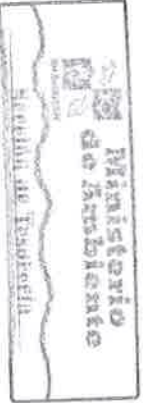 Ministerio
de Ambiente
Sección de Tesorería